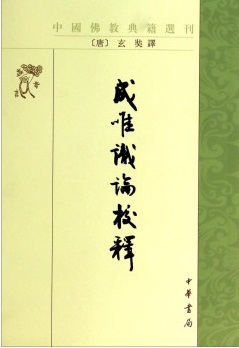 中國佛教典籍選刊
〔唐〕玄奘譯
成唯識論校釋
中華書局